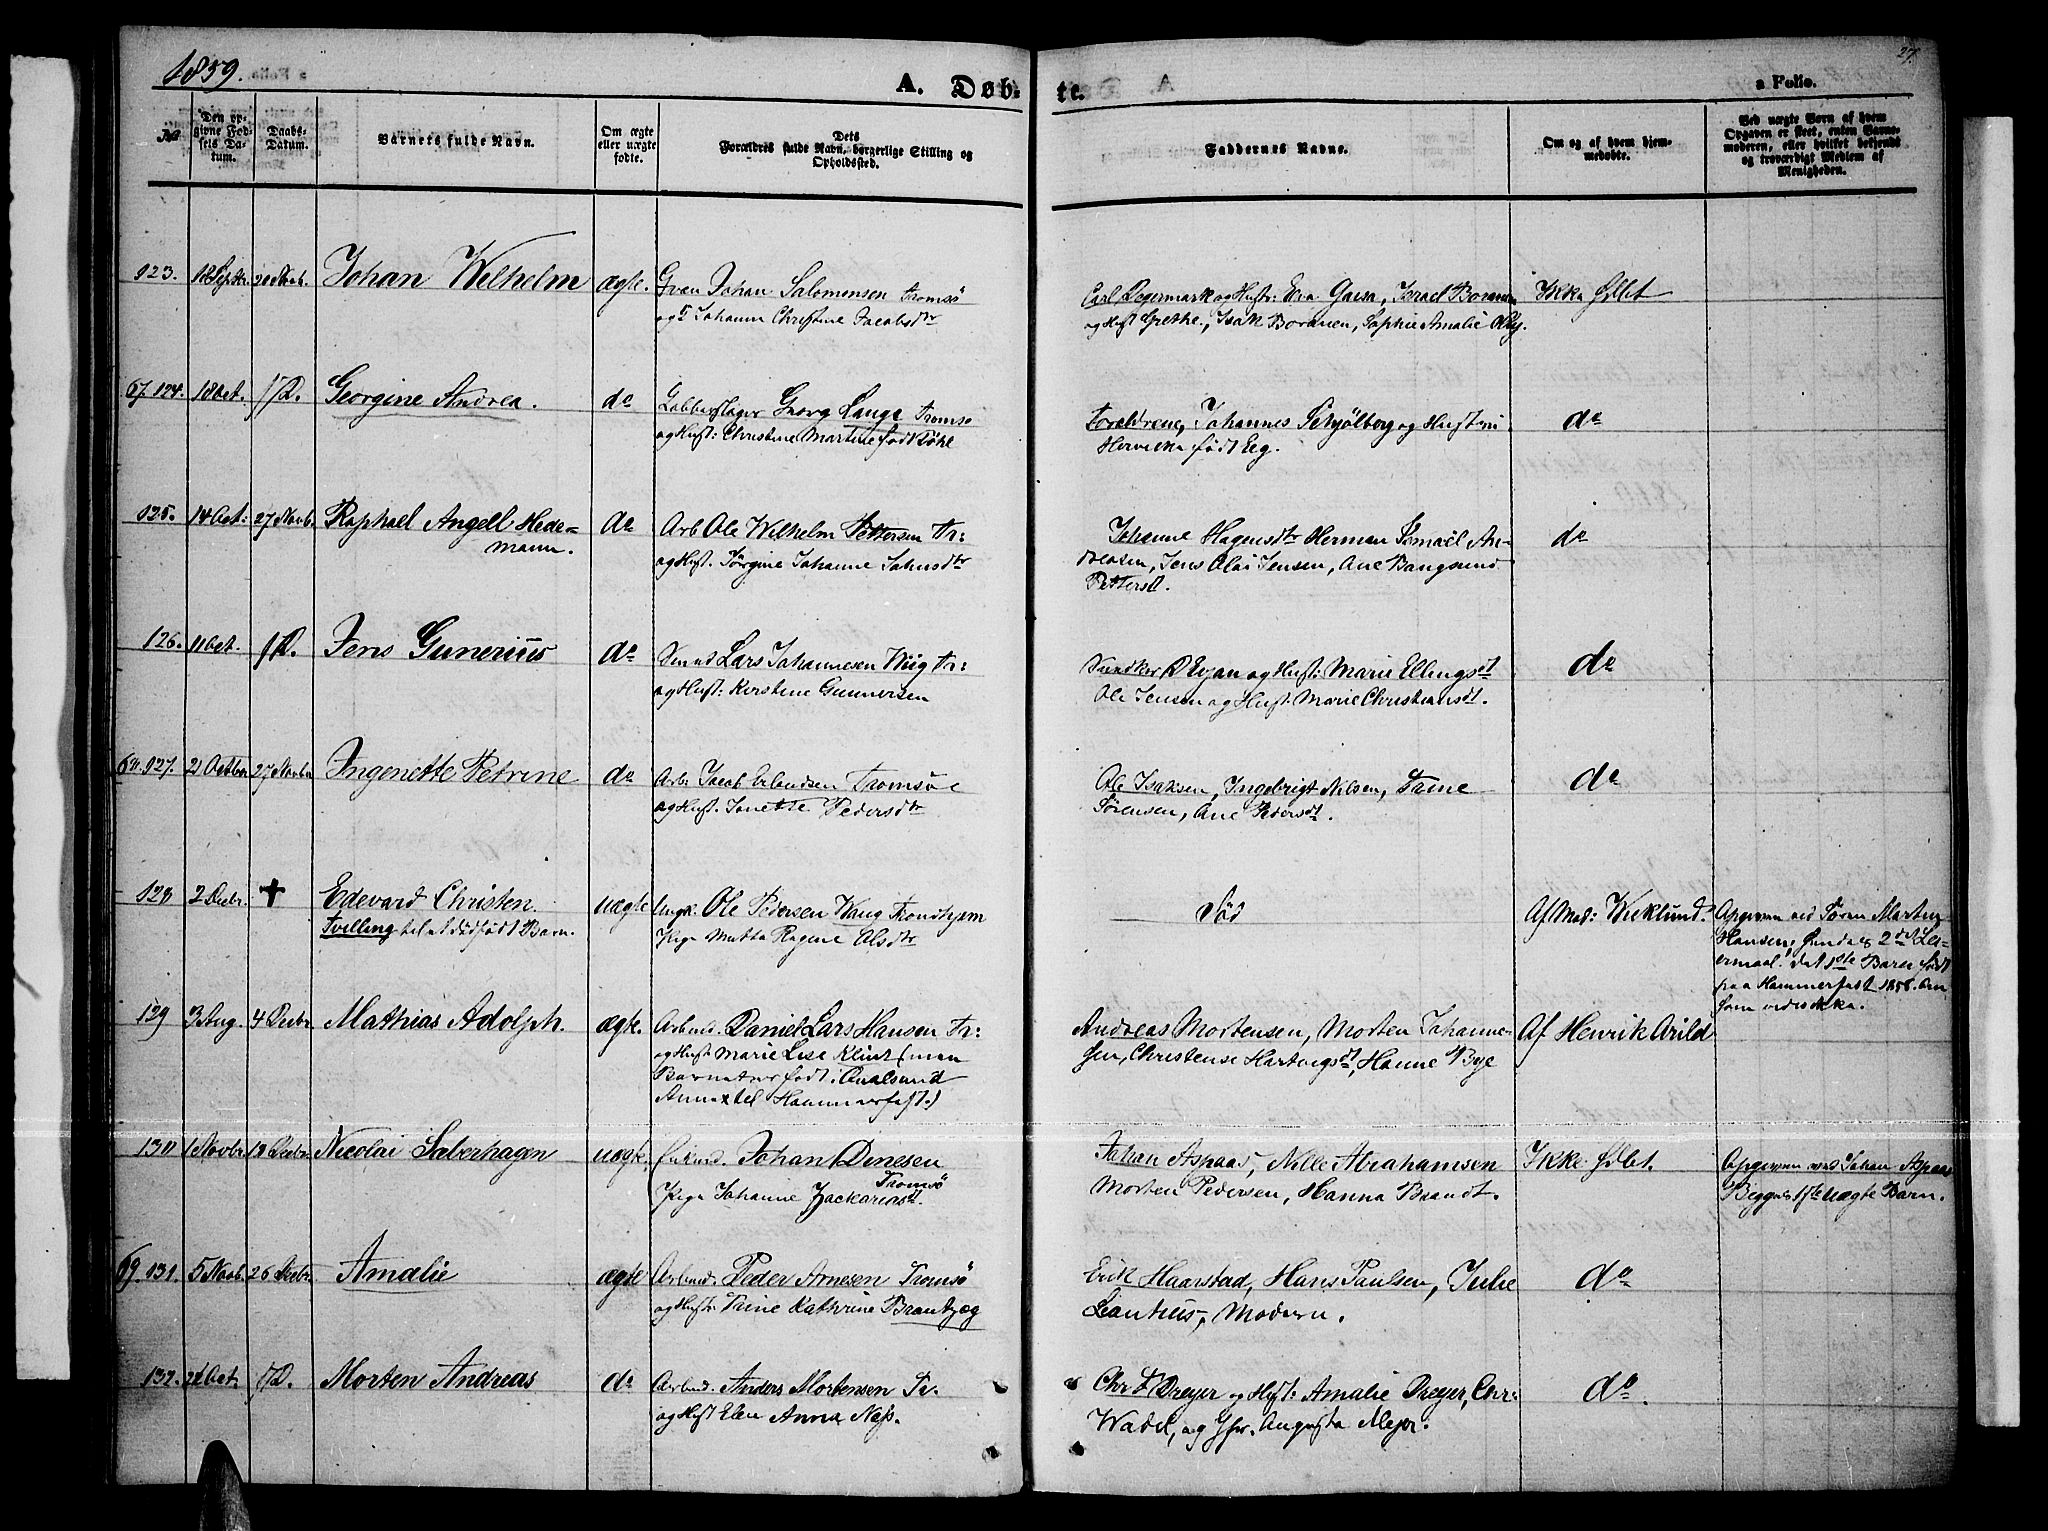 1859.
27.
A. Døb-
te.
a Folio.
No
Den op-
givne Fød-
sels Da-
tum.
Daabs-
Datum.
Barnets fulde Navn.
Om ægte
eller uægte
fødte.
Dets
Forældres fulde Navn, borgerlige Stilling og
Opholdssted.
Faddernes Navne.
Om og af hvem hjem-
medøbte.
Ved uægte Børn af hvem
Opgaven er skeet, enten Barne-
moderen, eller hvilket bekjendt
og troværdigt Medlem af
Menigheden.
123. 18 Septbr. 20 Novb. Johan Welhelm ægte. Johan Salomonsen Tromsø
Johanna Christine Jacobsdtr
Carl Degermark og Hustr: Eva Gaesa, Israel
og Hust Grethe, Isak Boranen, Sophie Amalie
Ikke Øllet
67. 124. 18 Oct. 1 D. Georgine Andrea. do Gjøbberslager Georg Lange Tromsø
og Hust: Christine Martine født Køhl
Forældrene, Johannes Schjølberg og Hustru
født Eeg.
do
125. 14 Oct: 27 Novb. Raphael Angell Hede-
mann.
do Arb Ole Wilhelm Pettersen Tr:
og Hust. Jørgine Johanne Johnsdtr
Johanne Hagensdtr Herman Ismael An-
dreasen, Jens Olai Jensen, Ane Bangsund
Pettersdt.
do
126. 11 Oct. 1 D. Jens Gunerius do Lars Johannesen Wiig Tr:
og Hust: Kerstine Gunnersen
Evjan og Hust: Marie Ellingsdt
Ole Jensen og Hust. Marie Christiansdt.
do
68. 127. 21 Octbr 27 Novbr Ingeriette Petrine do Arb. Jacob Erlandsen Tromsøe
og Hust. Jonette Pedersdtr
Ole Isaksen, Ingebrigt Nilsen, Trine
Sørensen, Ane Pedersdt.
do
128 2 Decbr. + Edevard Christen
Tvilling til et dødfødt Barn.
uægte Ungk. Ole Pedersen Waug Trondhjem
Pige Matta Regine Olsdtr
Død
Af Mad: Wicklund.
Opgiven ved Søren Martin
Hansen, Hendes 2det Lei-
ermaal. Det 1ste Barn født
paa Hammerfest 1858. Om
som vides ikke.
129 3 Aug. 4 Decbr Mathias Adolph. ægte. Arbmd. Daniel Lars Hansen Tr:
og Hust. Marie Lise Klint (men
Barnet er født i Qualsund
Annex til Hammerfest.)
Andreas Mortensen, Morten Johanne-
sen, Christense Hartvigsdt, Hanne Bye
Af Henrik Arild
130 1 Novbr 18 Decbr. Nicolai Saberhagen uægte. Enkmd. Johan Dinesen
Tromsø
Pige Johanne Zackariasdt.
Johan Aspaas, Nille Abrahamsen
Morten Pedersen, Hanna Brandt.
Ikke Øllet.
Opgiven ved Johan Aspaas
Begges 1ste uægte Barn.
69. 131. 5 Novb. 26 Decbr. Amalie ægte Arbmd. Peder Arnesen Tromsø
og Hust. Trine Kathrine Brandtzæg
Erik Haarstad, Hans Paulsen, Julie
Leonthius, Modern.
do
132. 21 Oct. 1 D. Morten Andreas do Arbmd. Anders Mortensen Tr.
og Hust Elen Anna Næss.
Chr Dreyer og Hust: Amalie Dreyer, Chr:
Wadel, og Jfr. Augusta Mejer.
do.